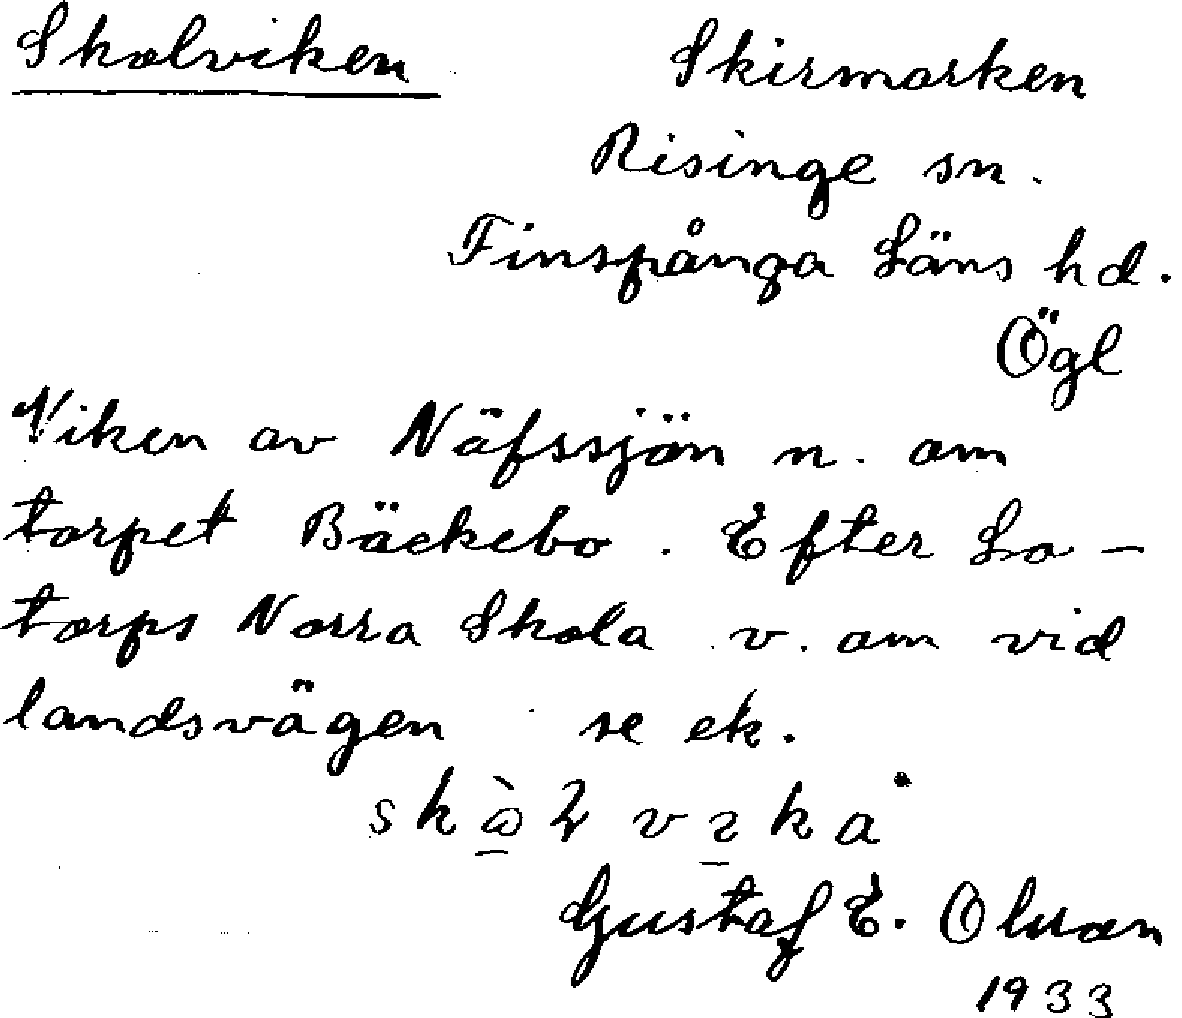 Skolviken
Skirmarken
Risinge sn.
Finspånga Läns hd.
Ögl
Viken av Näfssjön n. om
torpet Bäckebo. Efter Lo-
torps Norra Skola v. om vid
landsvägen se ek.
Gustaf E. Olsson
1933